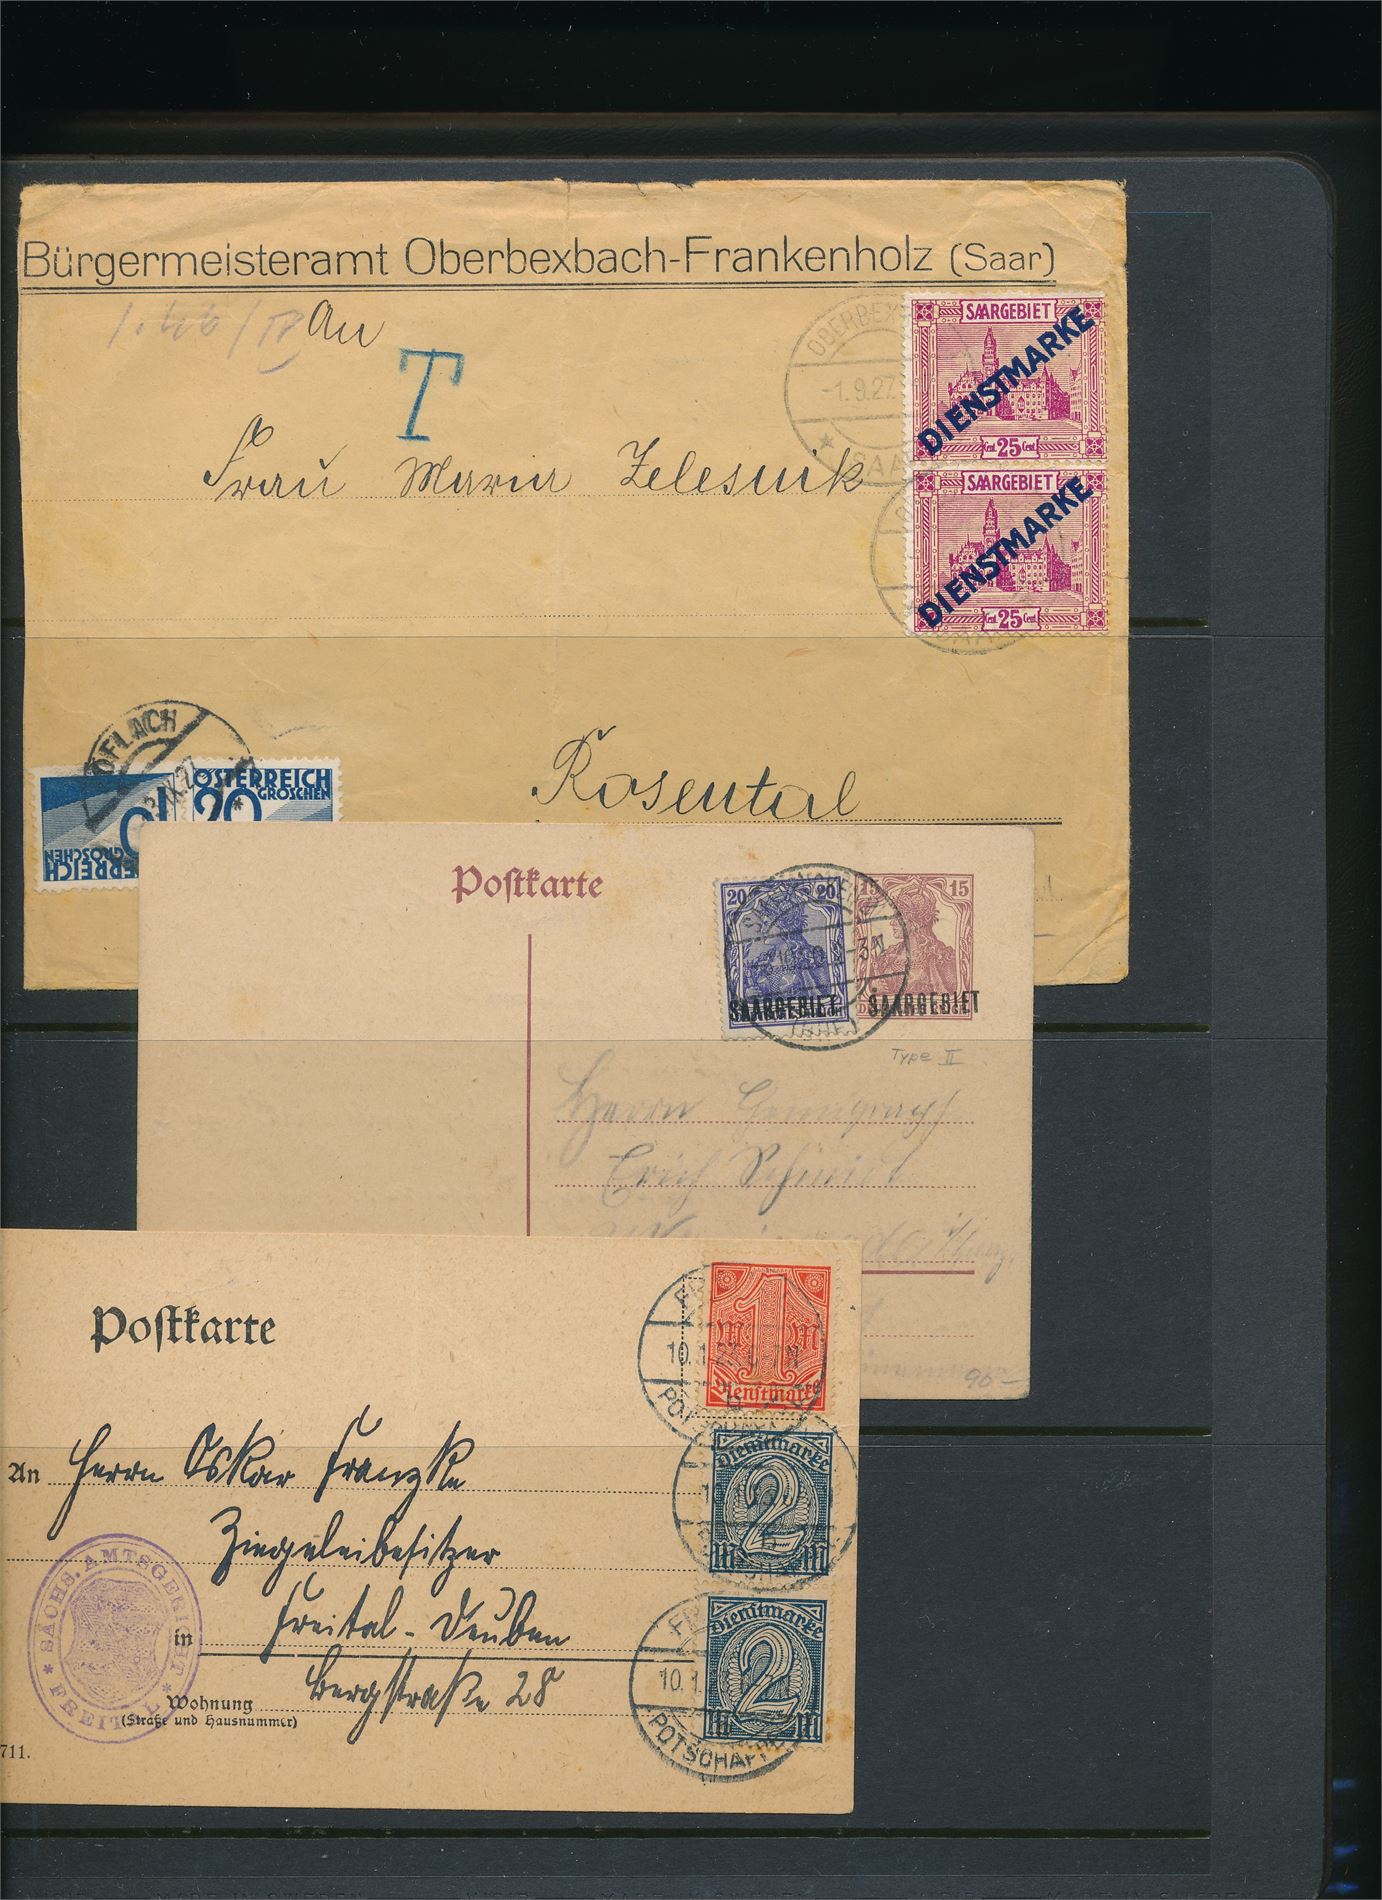 Bürgermeisteramt Oberbexbach-Frankenholz (Saar)
An
T
Frau Maria Zelesnik
Rosental
OBERBEX
-1.9.27.
SAA
SAARGEBIET
DIENSTMARKE
Cent. 25 Cent.
SAARGEBIET
DIENSTMARKE
Cent. 25 Cent.
ÖFLACH
IX.27
10
GROSCHEN
ERREICH
ÖSTERREICH
20 GROSCHEN
Postkarte
20 20
SAARGEBIET
15 15
SAARGEBIET
Type II
Herrn
Erich Schmidt
90-
Postkarte
An Herrn Oskar Franzke
Ziegeleibesitzer
in Freital-Deuben
Wohnung Bergstraße 28
(Straße und Hausnummer)
711.
SÄCHS. AMTSGERICHT
FREITAL
1
M M
Dienstmarke
Dienstmarke
2
M M
Dienstmarke
2
M M
10.1.23
10.1.
POTSCHAPPEL